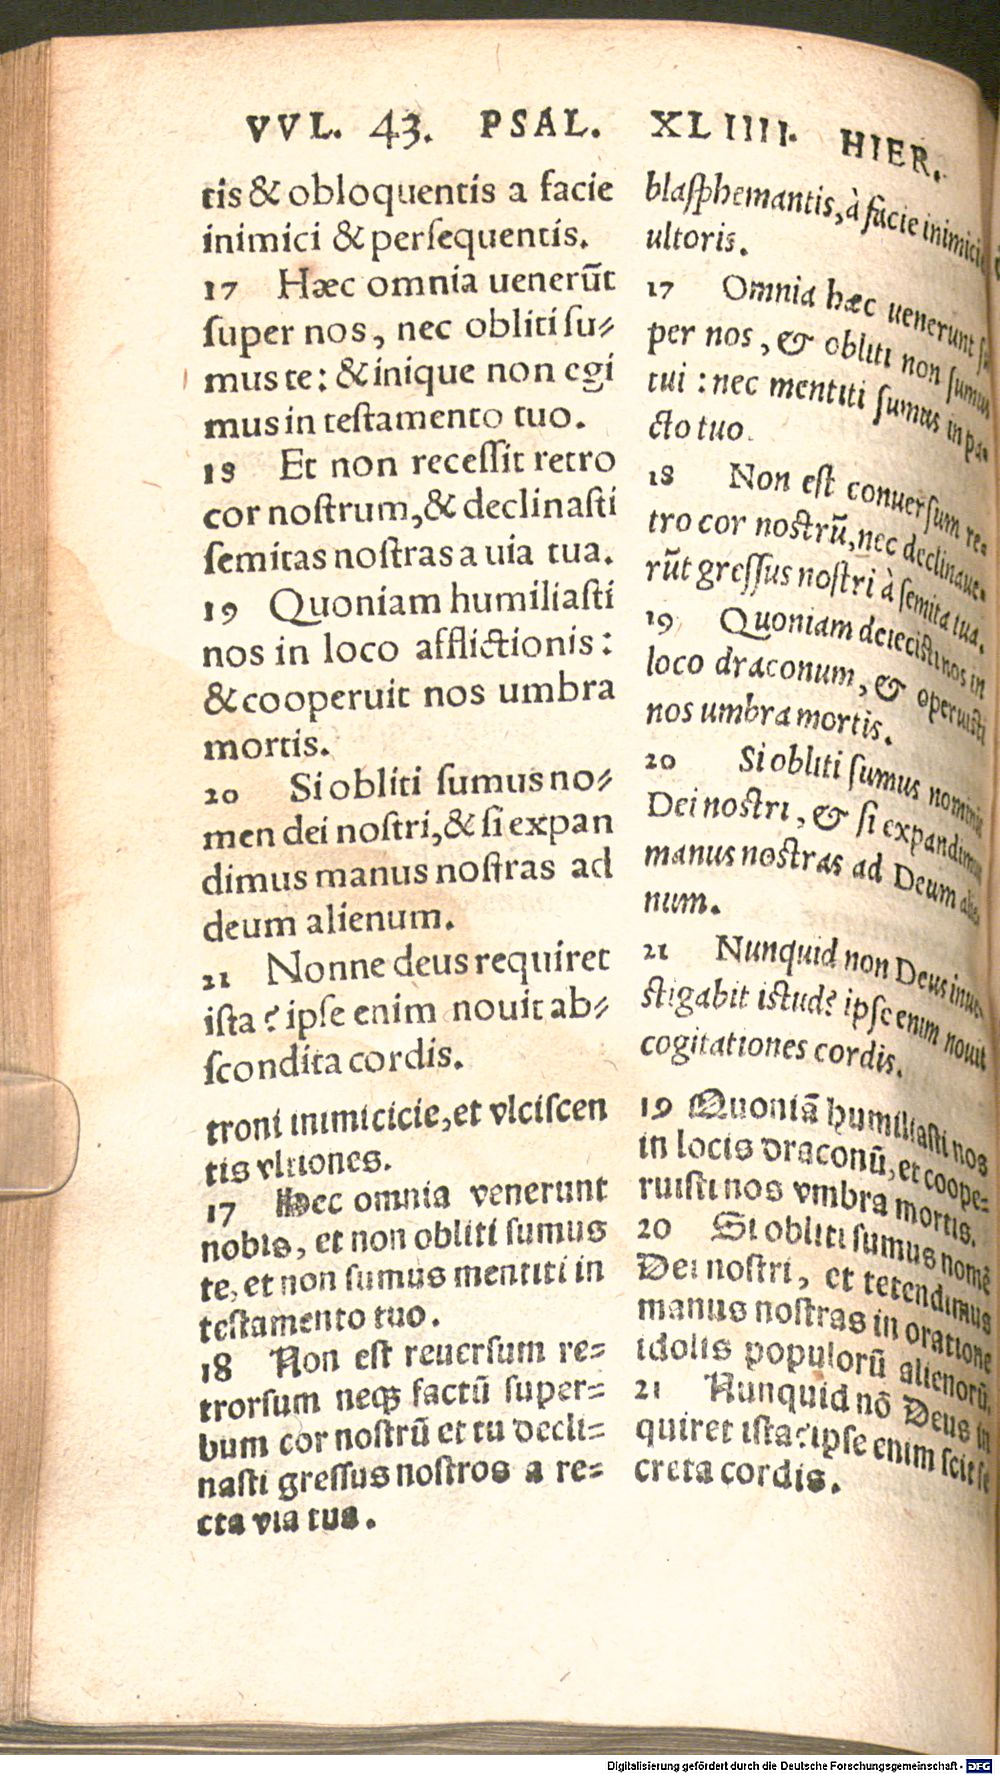 VVL. 43. PSAL. XLIIII. HIER.
tis & obloquentis a facie
inimici & persequentis.
17 Hæc omnia uenerūt
super nos, nec obliti su-
mus te: & inique non egi
mus in testamento tuo.
18 Et non recessit retro
cor nostrum, & declinasti
semitas nostras a uia tua.
19 Quoniam humiliasti
nos in loco afflictionis:
& cooperuit nos umbra
mortis.
20 Si obliti sumus no-
men dei nostri, & si expan
dimus manus nostras ad
deum alienum.
21 Nonne deus requiret
ista? ipse enim nouit ab-
scondita cordis.
blasphemantis, à facie inimici
ultoris.
17 Omnia hæc uenerunt su
per nos, & obliti non sumus
tui: nec mentiti sumus in pa-
cto tuo.
18 Non est conuersum re-
tro cor nostrū, nec declinaue-
rūt gressus nostri à semita tua.
19 Quoniam deiecisti nos in
loco draconum, & operuisti
nos umbra mortis.
20 Si obliti sumus nominis
Dei nostri, & si expandimus
manus nostras ad Deum alie
num.
21 Nunquid non Deus inue-
stigabit istud? ipse enim nouit
cogitationes cordis.
troni inimicicie, et vlciscen
tis vltiones.
17 Hec omnia venerunt
nobis, et non obliti sumus
te, et non sumus mentiti in
testamento tuo.
18 Non est reuersum re-
trorsum neqꝫ factū super-
bum cor nostrū et tu decli-
nasti gressus nostros a re-
cta via tua.
19 Quoniā humiliasti nos
in locis draconū, et coope-
ruisti nos vmbra mortis.
20 Si obliti sumus nomē
Dei nostri, et tetendimus
manus nostras in oratione
idolis populorū alienorū,
21 Nunquid nō Deus in
quiret ista? ipse enim scit se
creta cordis.
Digitalisierung gefördert durch die Deutsche Forschungsgemeinschaft - DFG